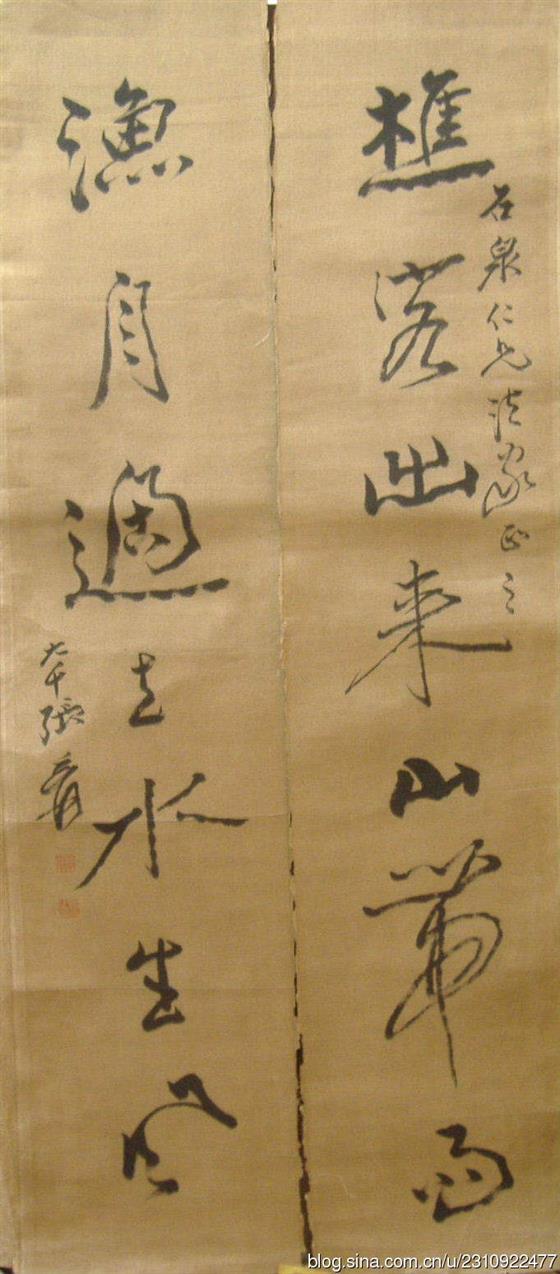 樵客出來山帶雨
石泉仁兄法家正之
漁舟過去水生風
大千張爰
blog.sina.com.cn/u/2310922477